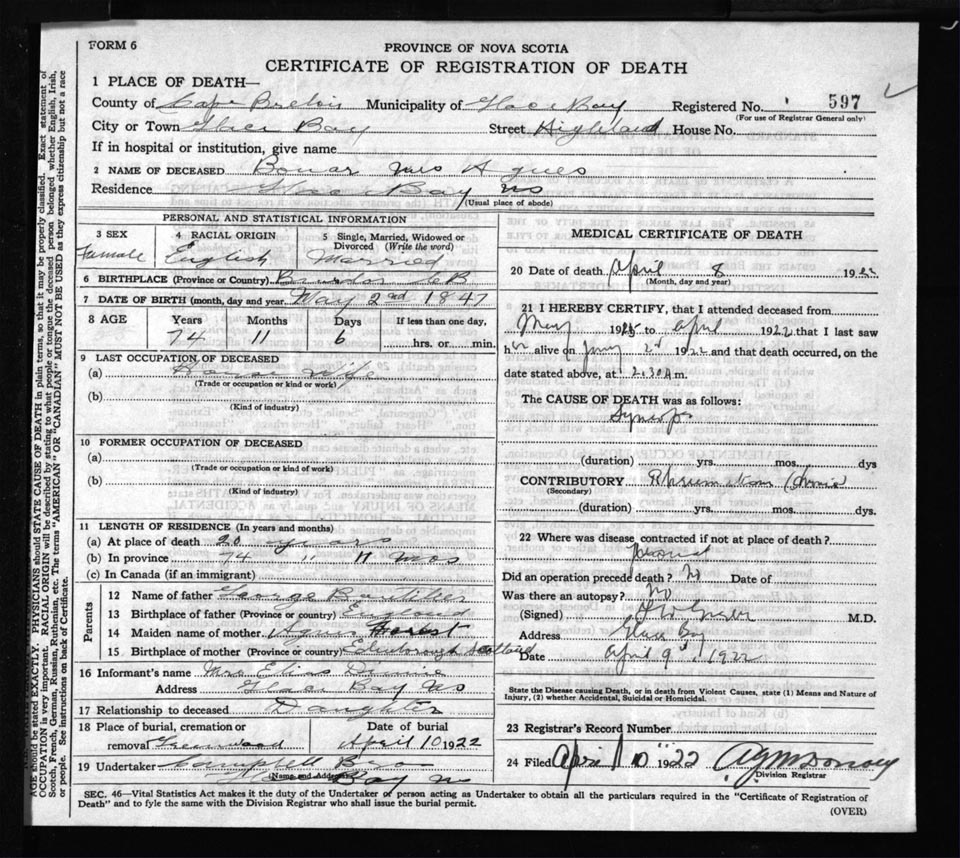 FORM 6
PROVINCE OF NOVA SCOTIA
CERTIFICATE OF REGISTRATION OF DEATH
1 PLACE OF DEATH—
County of Cape Breton Municipality of Glace Bay Registered No. 597
(For use of Registrar General only)
City or Town Glace Bay Street Highland House No.
If in hospital or institution, give name
2 NAME OF DECEASED Bonar Mrs Agnes
Residence Glace Bay NS
(Usual place of abode)
PERSONAL AND STATISTICAL INFORMATION
3 SEX Female
4 RACIAL ORIGIN English
5 Single, Married, Widowed or Divorced (Write the word) Married
6 BIRTHPLACE (Province or Country) CB
7 DATE OF BIRTH (month, day and year) May 2nd 1847
8 AGE Years Months Days If less than one day,
74 11 6 hrs. or min.
9 LAST OCCUPATION OF DECEASED
(a) House Wife
(Trade or occupation or kind or work)
(b)
(Kind of industry)
10 FORMER OCCUPATION OF DECEASED
(a)
(Trade or occupation or kind of work)
(b)
(Kind of industry)
11 LENGTH OF RESIDENCE (In years and months)
(a) At place of death 20 years
(b) In province 74 " 11 mos
(c) In Canada (if an immigrant)
Parents
12 Name of father George Boutilier
13 Birthplace of father (Province or Country) England
14 Maiden name of mother Agnes
15 Birthplace of mother (Province or country) Edinborough Scotland
16 Informant's name Mrs
Address Glace Bay NS
17 Relationship to deceased Daughter
18 Place of burial, cremation or removal Greenwood
Date of burial April 10 1922
19 Undertaker Campbell
(Name and Address) Bay NS
MEDICAL CERTIFICATE OF DEATH
20 Date of death April 8 1922
(Month, day and year)
21 I HEREBY CERTIFY, that I attended deceased from
May 19 to April 1922 that I last saw
h alive on 2nd 1922 and that death occurred, on the
date stated above, at 2.30 A m.
The CAUSE OF DEATH was as follows:
Syncope
(duration) yrs. mos. dys
CONTRIBUTORY Rheumatism (Chronic
(Secondary)
(duration) yrs. mos. dys.
22 Where was disease contracted if not at place of death?
Did an operation precede death? No Date of
Was there an autopsy? No
(Signed) M.D.
Address Glace Bay
Date April 9th, 1922
State the Disease causing Death, or in death from Violent Causes, state (1) Means and Nature of
Injury, (2) whether Accidental, Suicidal or Homicidal.
23 Registrar's Record Number
24 Filed April 10 1922
Division Registrar
SEC. 46—Vital Statistics Act makes it the duty of the Undertaker or person acting as Undertaker to obtain all the particulars required in the "Certificate of Registration of
Death" and to fyle the same with the Division Registrar who shall issue the burial permit.
(OVER)
AGE should be stated EXACTLY. PHYSICIANS should STATE CAUSE OF DEATH in plain terms, so that it may be properly classified. Exact statement of
OCCUPATION is very important. RACIAL ORIGIN will be described by stating to what people or tongue the deceased person belonged whether English, Irish,
Scotch, French, German, Russian, Ruthenian, etc. The terms "AMERICAN" OR "CANADIAN" MUST NOT BE USED as they express citizenship but not a race
or people. See instructions on back of Certificate.